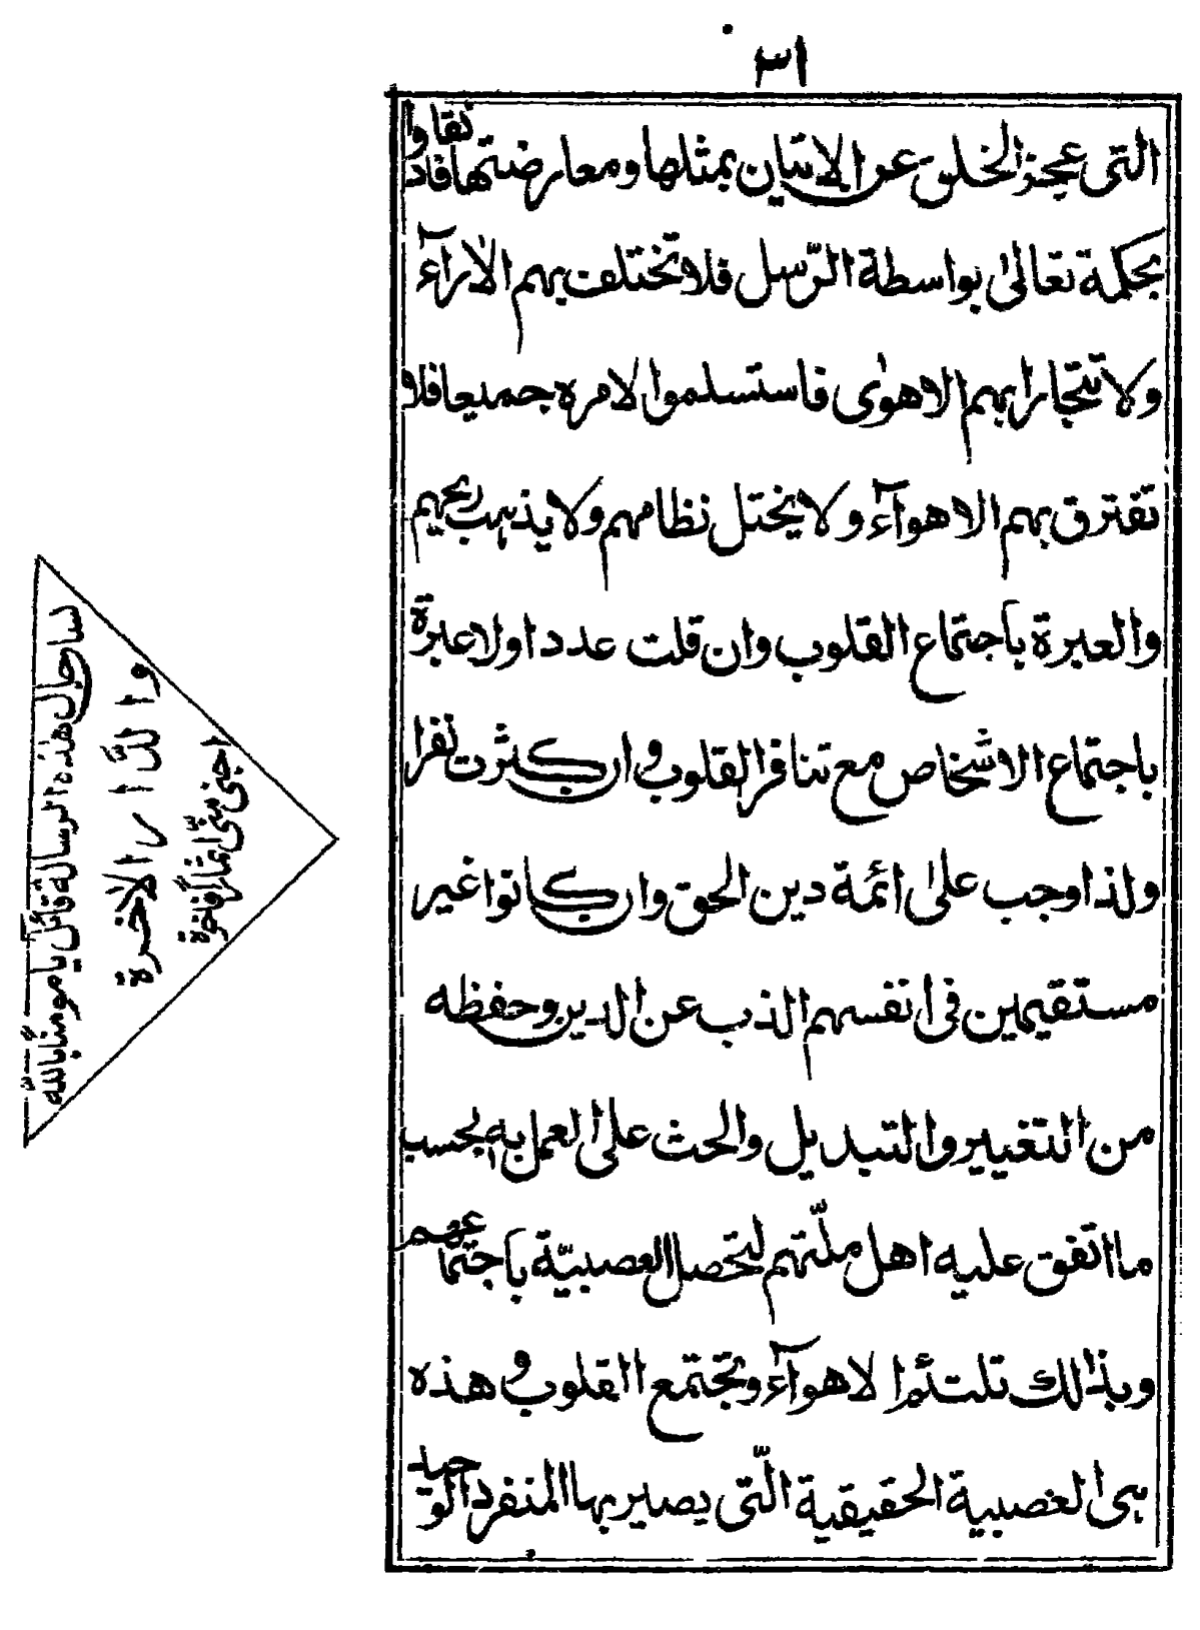 ٣١
التى عجز الخلق عن الاتيان بمثلها ومعارضتها فانقادوا
بحكمة تعالىٰ بواسطة الرّسل فلا تختلف بهم الاٰرآء
ولا تتجارا بهم الاهوٰى فاستسلموا لامره جميعا فلا
تفترق بهم الاهوآء ولا يختل نظامهم ولا يذهب ريحهم
والعبرة باجتماع القلوب وان قلت عددا ولا عبرة
باجتماع الاشخاص مع تنافر القلوب وان كثرت نفرا
ولذا وجب علىٰ ائمة دين الحق وان كانوا غير
مستقيمين فى انفسهم الذب عن الدين وحفظه
من التغيير والتبديل والحث على العمل به بحسب
ما اتفق عليه اهل ملّتهم لتحصل العصبيّة باجتماعهم
وبذالك تلتئم الاهوآء وتجتمع القلوب وهذه
هى العصبية الحقيقية الّتى يصير بها المنفرد الوحيد
لسا حال هٰذه الرسالة قائل يا مومنا بالله
والدّار الاٰخرة
اجنى منّى